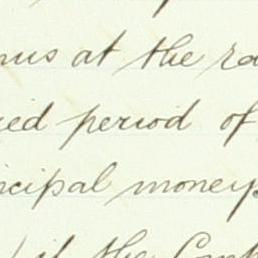 nus at the ra
ied period of
ncipal moneys
if the Cont